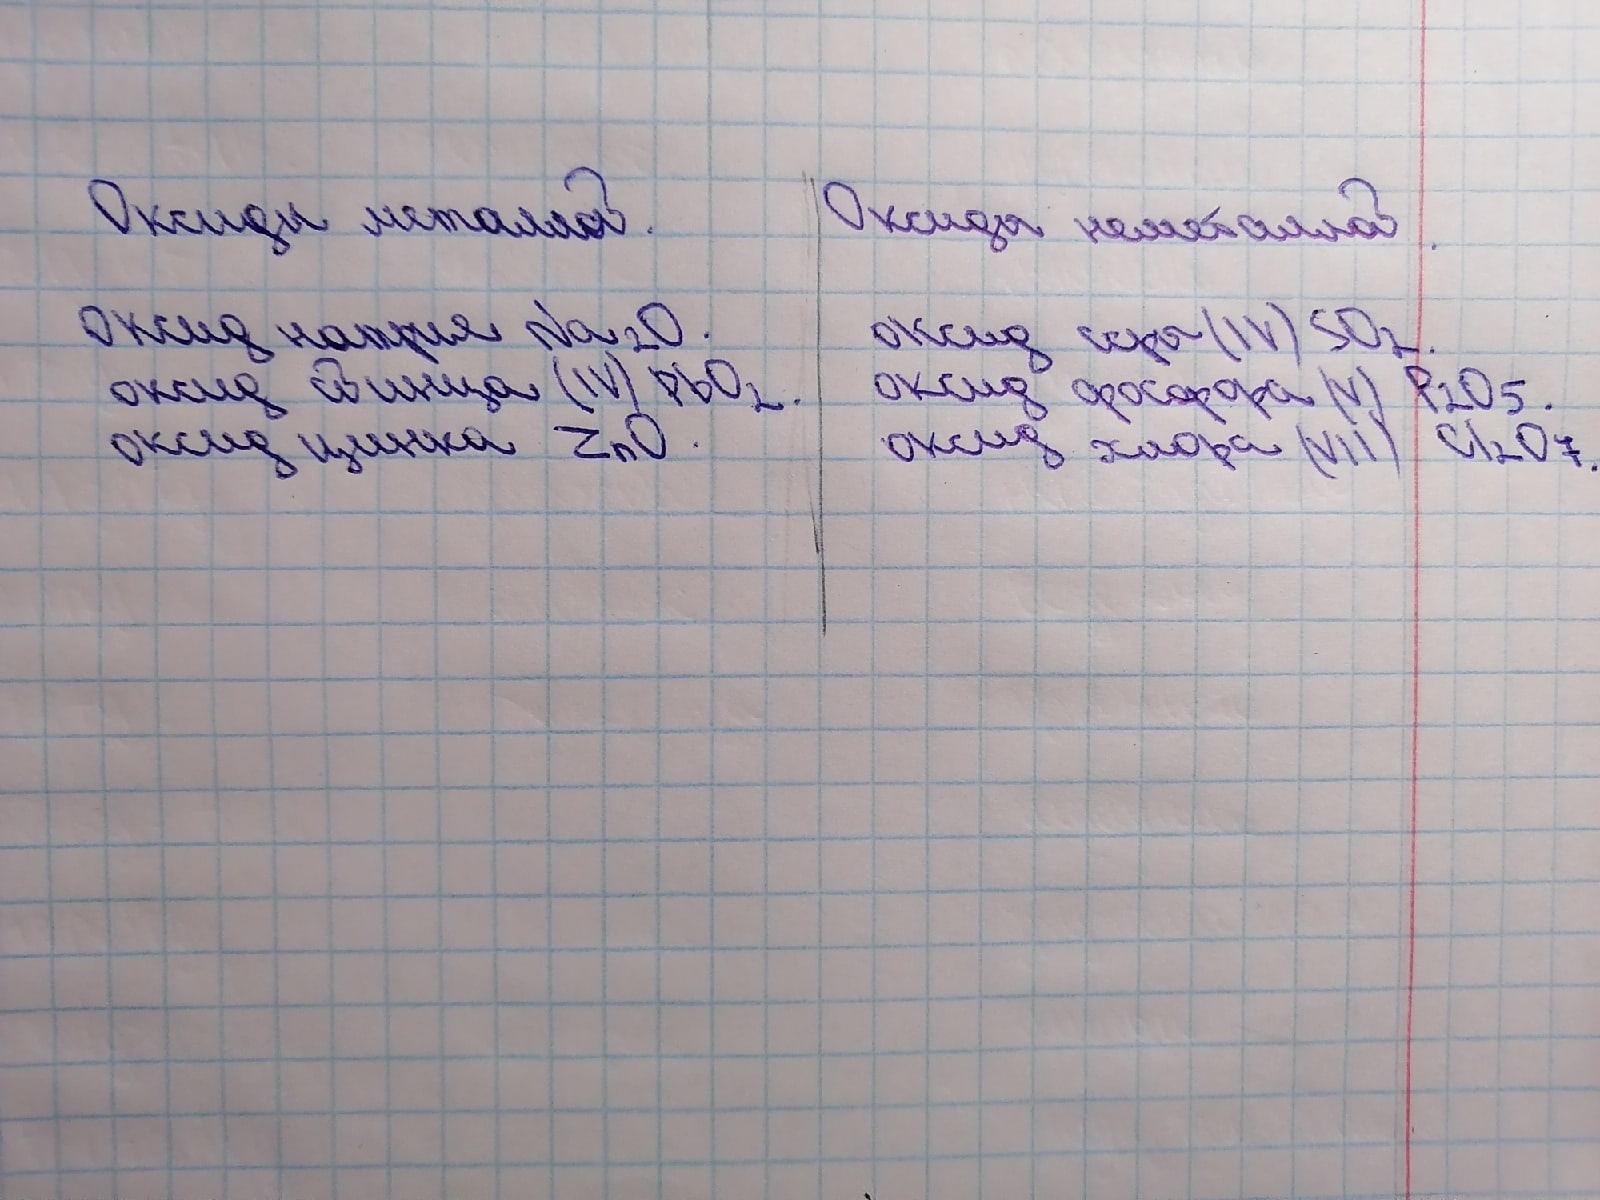 Оксиды металлов.
Оксид натрия Na2O.
оксид свинца (IV) PbO2.
оксид цинка ZnO.
Оксиды неметаллов.
оксид серы (IV) SO2.
оксид фосфора (V) P2O5.
оксид хлора (VII) Cl2O7.